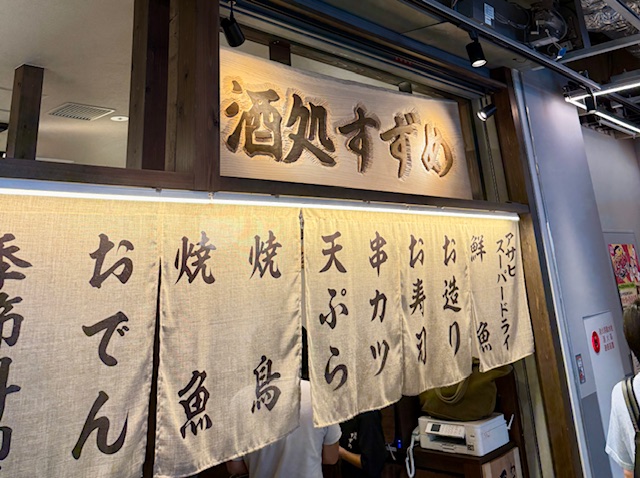 酒処すずめ
アサヒ
スーパードライ
鮮魚
お造り
お寿司
串カツ
天ぷら
焼鳥
焼魚
おでん
季節料理